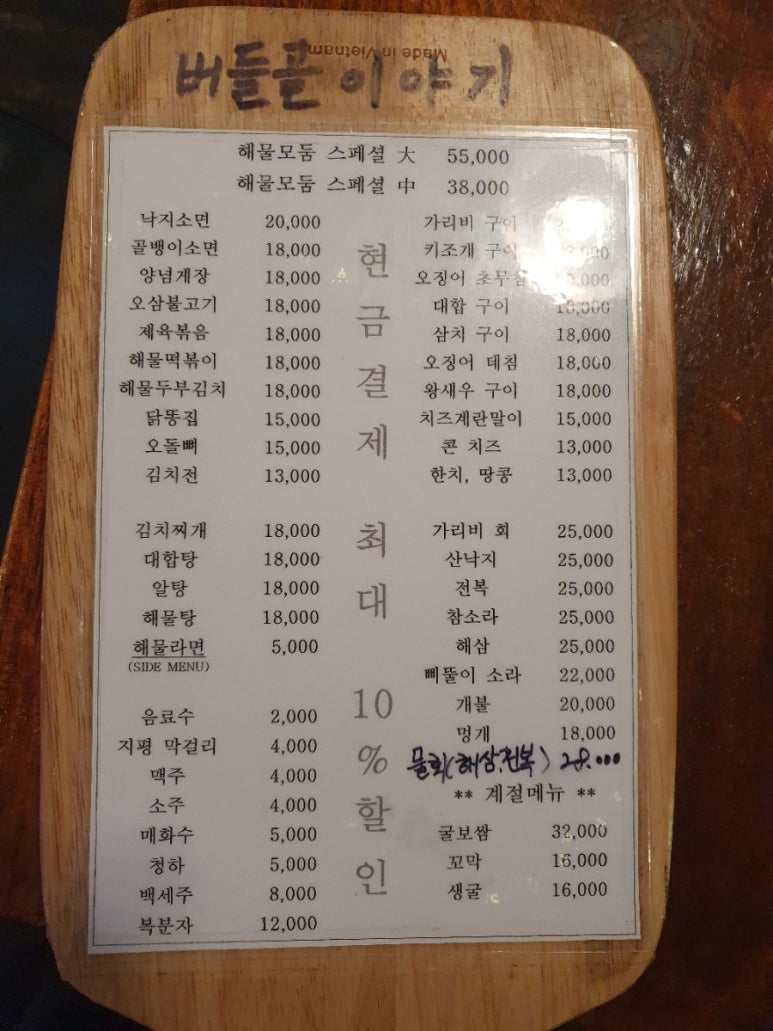 Made in Vietnam
버들골 이야기
해물모둠 스페셜 大 55,000
해물모둠 스페셜 中 38,000
낙지소면 20,000
골뱅이소면 18,000
양념게장 18,000
오삼불고기 18,000
제육볶음 18,000
해물떡볶이 18,000
해물두부김치 18,000
닭똥집 15,000
오돌뼈 15,000
김치전 13,000
김치찌개 18,000
대합탕 18,000
알탕 18,000
해물탕 18,000
해물라면 5,000
(SIDE MENU)
음료수 2,000
지평 막걸리 4,000
맥주 4,000
소주 4,000
매화수 5,000
청하 5,000
백세주 8,000
복분자 12,000
현금결제 최대 10%할인
가리비 구이
키조개 구이
오징어 초무침
대합 구이 18,000
삼치 구이 18,000
오징어 데침 18,000
왕새우 구이 18,000
치즈계란말이 15,000
콘 치즈 13,000
한치, 땅콩 13,000
가리비 회 25,000
산낙지 25,000
전복 25,000
참소라 25,000
해삼 25,000
삐뚤이 소라 22,000
개불 20,000
멍게 18,000
물회(해삼.전복) 28.000
** 계절메뉴 **
굴보쌈 32,000
꼬막 16,000
생굴 16,000